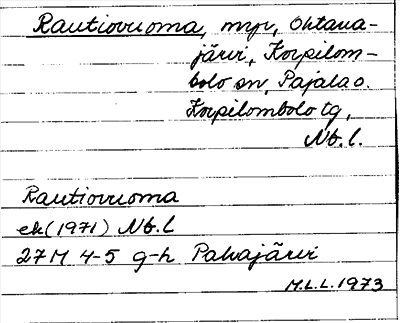 Rautiovuoma, myr, Ohtana-
järvi, Korpilom-
bolo sn, Pajala o.
Korpilombolo tg,
Nb. l.
Rautiovuoma
ek (1971) Nb. l
27 M 4-5 g-h Pahajärvi
M.L.L. 1973